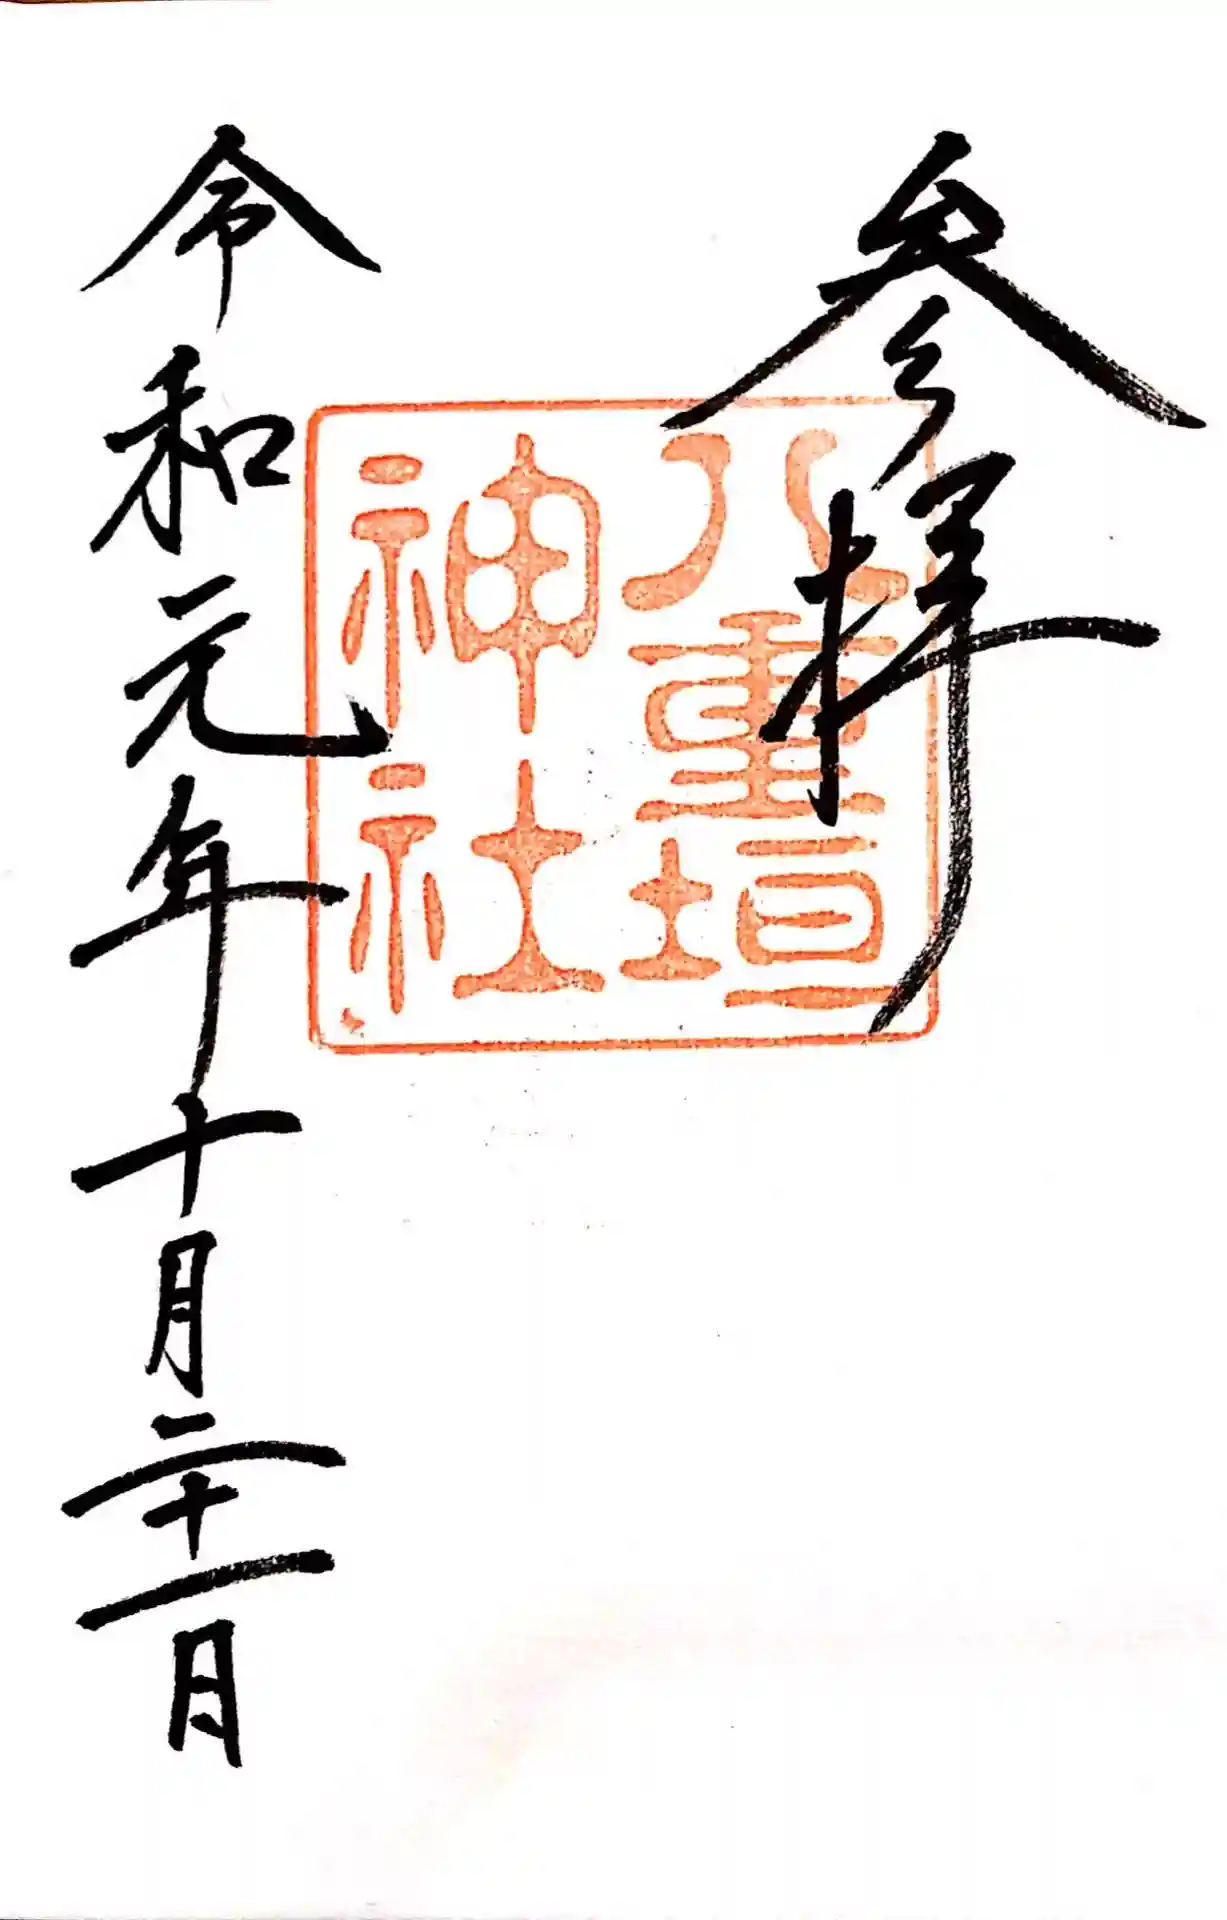 参拝
八重垣
神社
令和元年十月二十一日